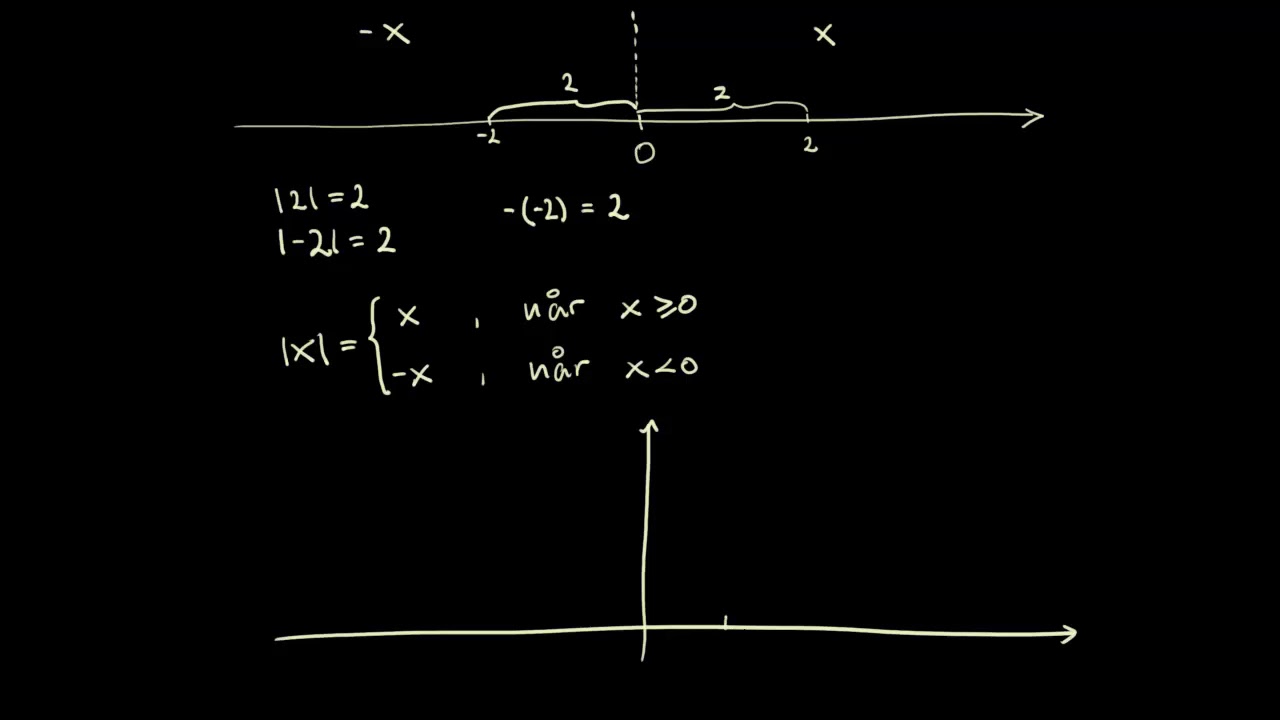 -x x
2 2
-2 0 2
|2| = 2 -(-2) = 2
|-2| = 2
|x| = { x , når x ⩾ 0
-x , når x < 0